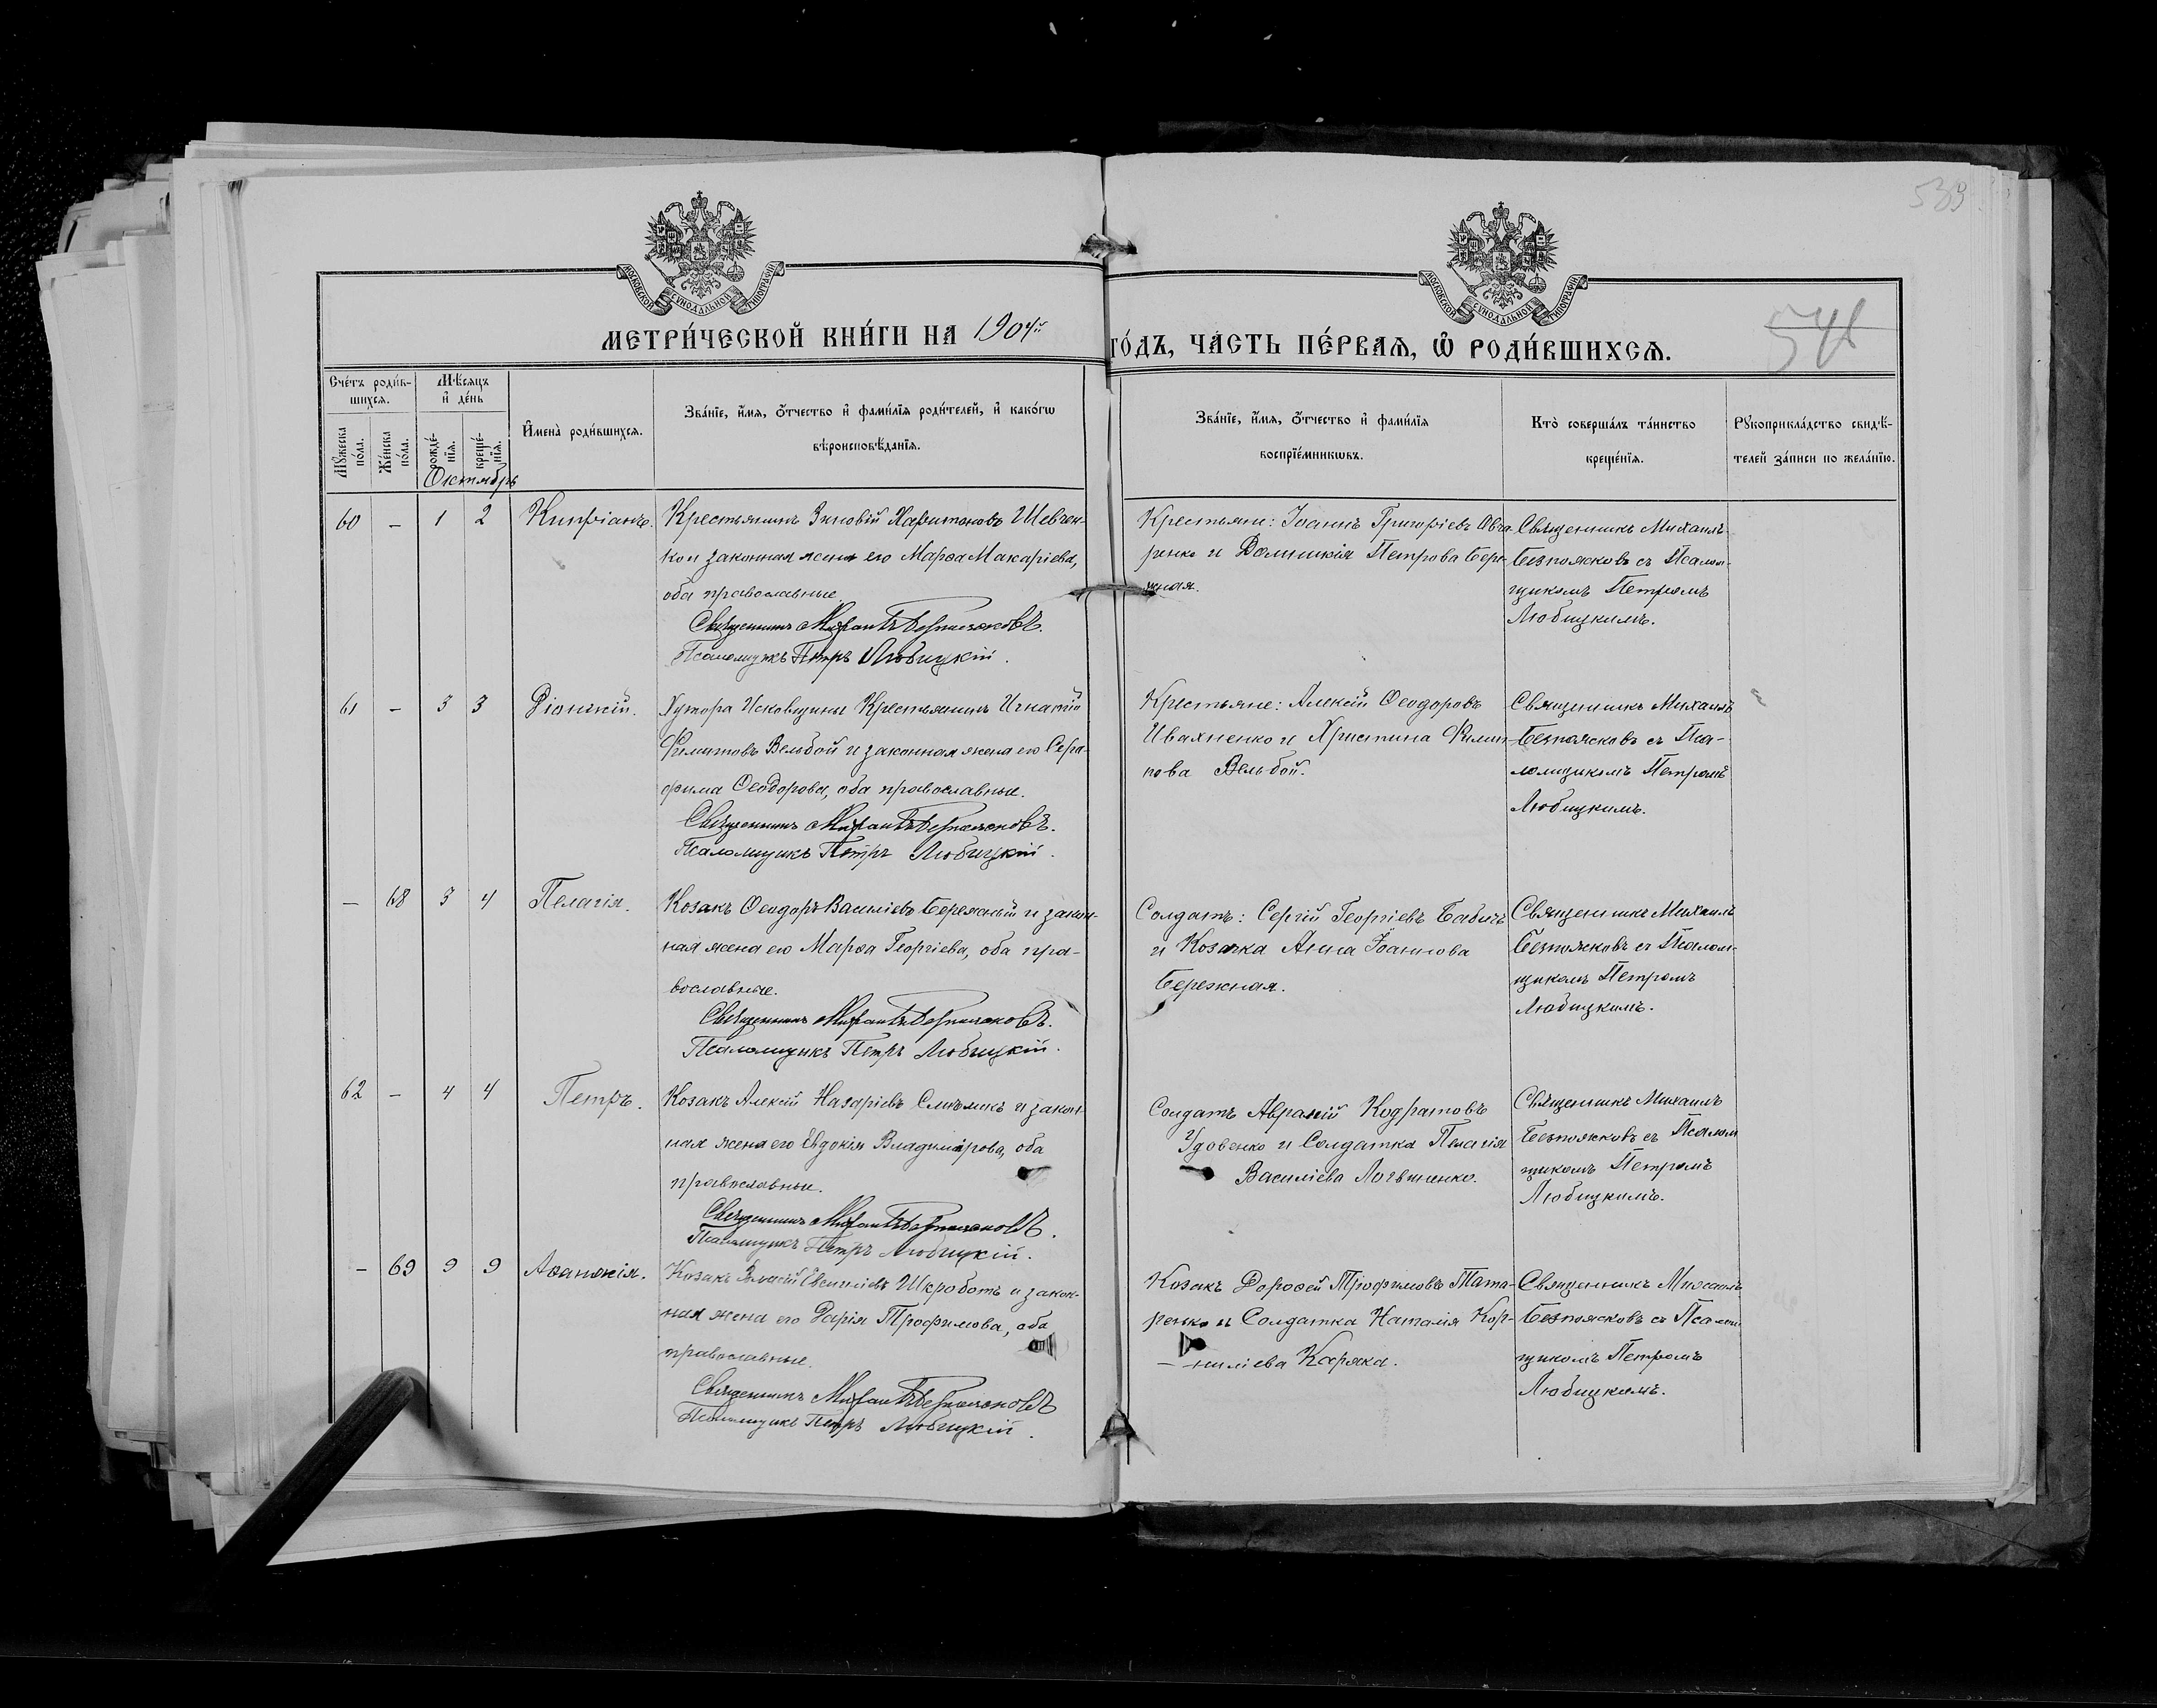 539
МОСКОВСКОЙ СѴНОДАЛЬНОЙ ТИПОГРАФІИ
МОСКОВСКОЙ СѴНОДАЛЬНОЙ ТИПОГРАФІИ
МЕТРИ́ЧЕСКОЙ КНИ́ГИ НА 1904й
ГО́ДЪ, ЧА́СТЬ ПЕ́РВАѦ, Ѡ҆ РОДИ́ВШИХСѦ.
Сче́тъ роди́в-
шихсѧ.
Мѣ́сѧцъ
и҆ де́нь
Мꙋ́жеска
по́ла.
Же́нска
по́ла.
рожде́-
нїѧ.
креще́-
нїѧ.
И҆мена̀ роди́вшихсѧ.
Зва́нїе, и҆́мѧ, ѻ҆́тчество и҆ фамѝлїѧ роди́телей, и҆ како́гѡ
вѣроисповѣ́данїѧ.
Зва́нїе, и҆́мѧ, ѻ҆́тчество и҆ фами́лїѧ
воспрїе́мникѡвъ.
Кто̀ соверша́лъ та́инство
креще́нїѧ.
Рꙋкоприкла́дство свидѣ́-
телей за́писи по жела́нїю.
Октябрь
60 – 1 2 Кипріанъ.
Крестьянинъ Зиновій Харитоновъ Шевчен-
ко и законная жена его Марѳа Макаріева,
оба православные.
Священникъ Михаилъ Безпоясковъ.
Псаломщикъ Петръ Любицкій.
Крестьяне: Іоаннъ Григоріевъ
ренко и Домникія Петрова Бере-
жная.
Священникъ Михаилъ
Безпоясковъ съ Псалом-
щикомъ Петромъ
Любицкимъ.
61 – 3 3 Діонисій.
Хутора Исковщины Крестьянинъ Игнатій
Филиповъ Вельбой и законная жена его Сера-
фима Ѳеодорова, оба православные.
Священникъ Михаилъ Безпоясковъ.
Псаломщикъ Петръ Любицкій.
Крестьяне: Алексій Ѳеодоровъ
Ивахненко и Христина Филип-
пова Вельбой.
Священникъ Михаилъ
Безпоясковъ съ Пса-
ломщикомъ Петромъ
Любицкимъ.
– 68 3 4 Пелагія.
Козакъ Ѳеодоръ Василіевъ Бережный и закон-
ная жена его Марѳа Георгіева, оба пра-
вославные.
Священникъ Михаилъ Безпоясковъ.
Псаломщикъ Петръ Любицкій.
Солдатъ: Сергій Георгіевъ Бабичъ
и Козачка Анна Іоаннова
Бережная.
Священникъ Михаилъ
Безпоясковъ съ Псалом-
щикомъ Петромъ
Любицкимъ.
62 – 4 4 Петръ.
Козакъ Алексій Назаріевъ и закон-
ная жена его Евдокія Владимірова, оба
православные.
Священникъ Михаилъ Безпоясковъ.
Псаломщикъ Петръ Любицкій.
Солдатъ Кодратовъ
Удовенко и Солдатка Пелагія
Василіева Логвиненко.
Священникъ Михаилъ
Безпоясковъ съ Псалом
щикомъ Петромъ
Любицкимъ.
– 69 9 9 Аѳанасія.
Козакъ Шкроботъ и закон-
ная жена его Дарія Трофимова, оба
православные.
Священникъ Михаилъ Безпоясковъ
Псаломщикъ Петръ Любицкій.
Козакъ Дороѳей Трофимовъ Тата-
ренко и Солдатка Наталія Кор-
– ниліева Каряка.
Священникъ Михаилъ
Безпоясковъ съ Псалом
щикомъ Петромъ
Любицкимъ.